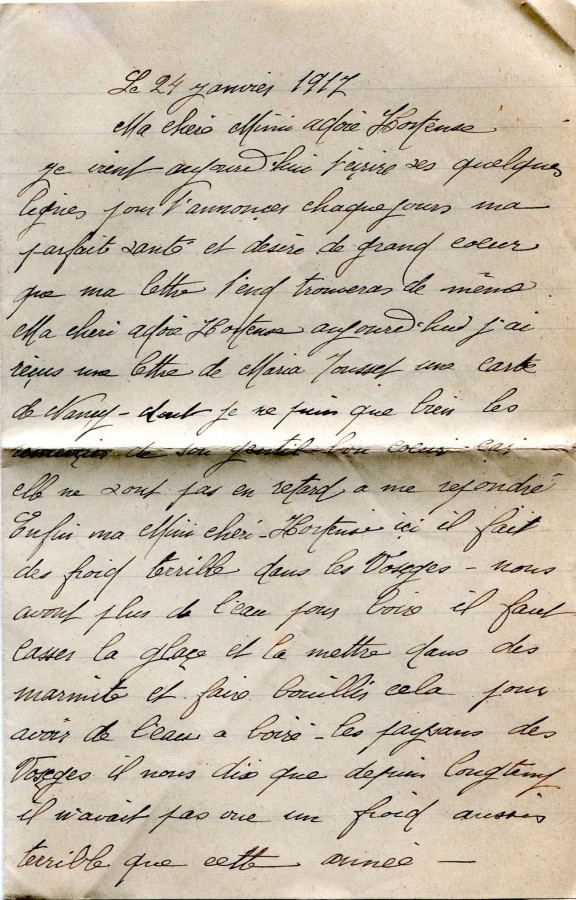 Le 24 janvier 1917
Ma chéré Mimi adoré Hortense
je vient aujourd'hui t'écrire ses quelques
lignes pour t'annoncer chaque jours ma
parfait santé et désire de grand coeur
que ma lettre t'en trouveras de même.
Ma cheri adoré Hortense aujourd'hui j'ai
réçus une lettre de Maria Joussef une carte
de Nancy - dont je ne puis que bien les
remercier de son gentil bon coeur car
elle ne sont pas en retard a me repondré
Enfin ma Mimi cheri - Hortense içi il fait
des froid terrible dans les Vosges - nous
avont plus de l'eau pour boire il faut
casser la glaçe et la mettre dans des
marmite et faire bouillir cela pour
avoir de l'eau a boiré - les paysans des
Vosges il nous dix que depuis longtemp
il n'avait pas vue un froid aussis
terrible que cette année —